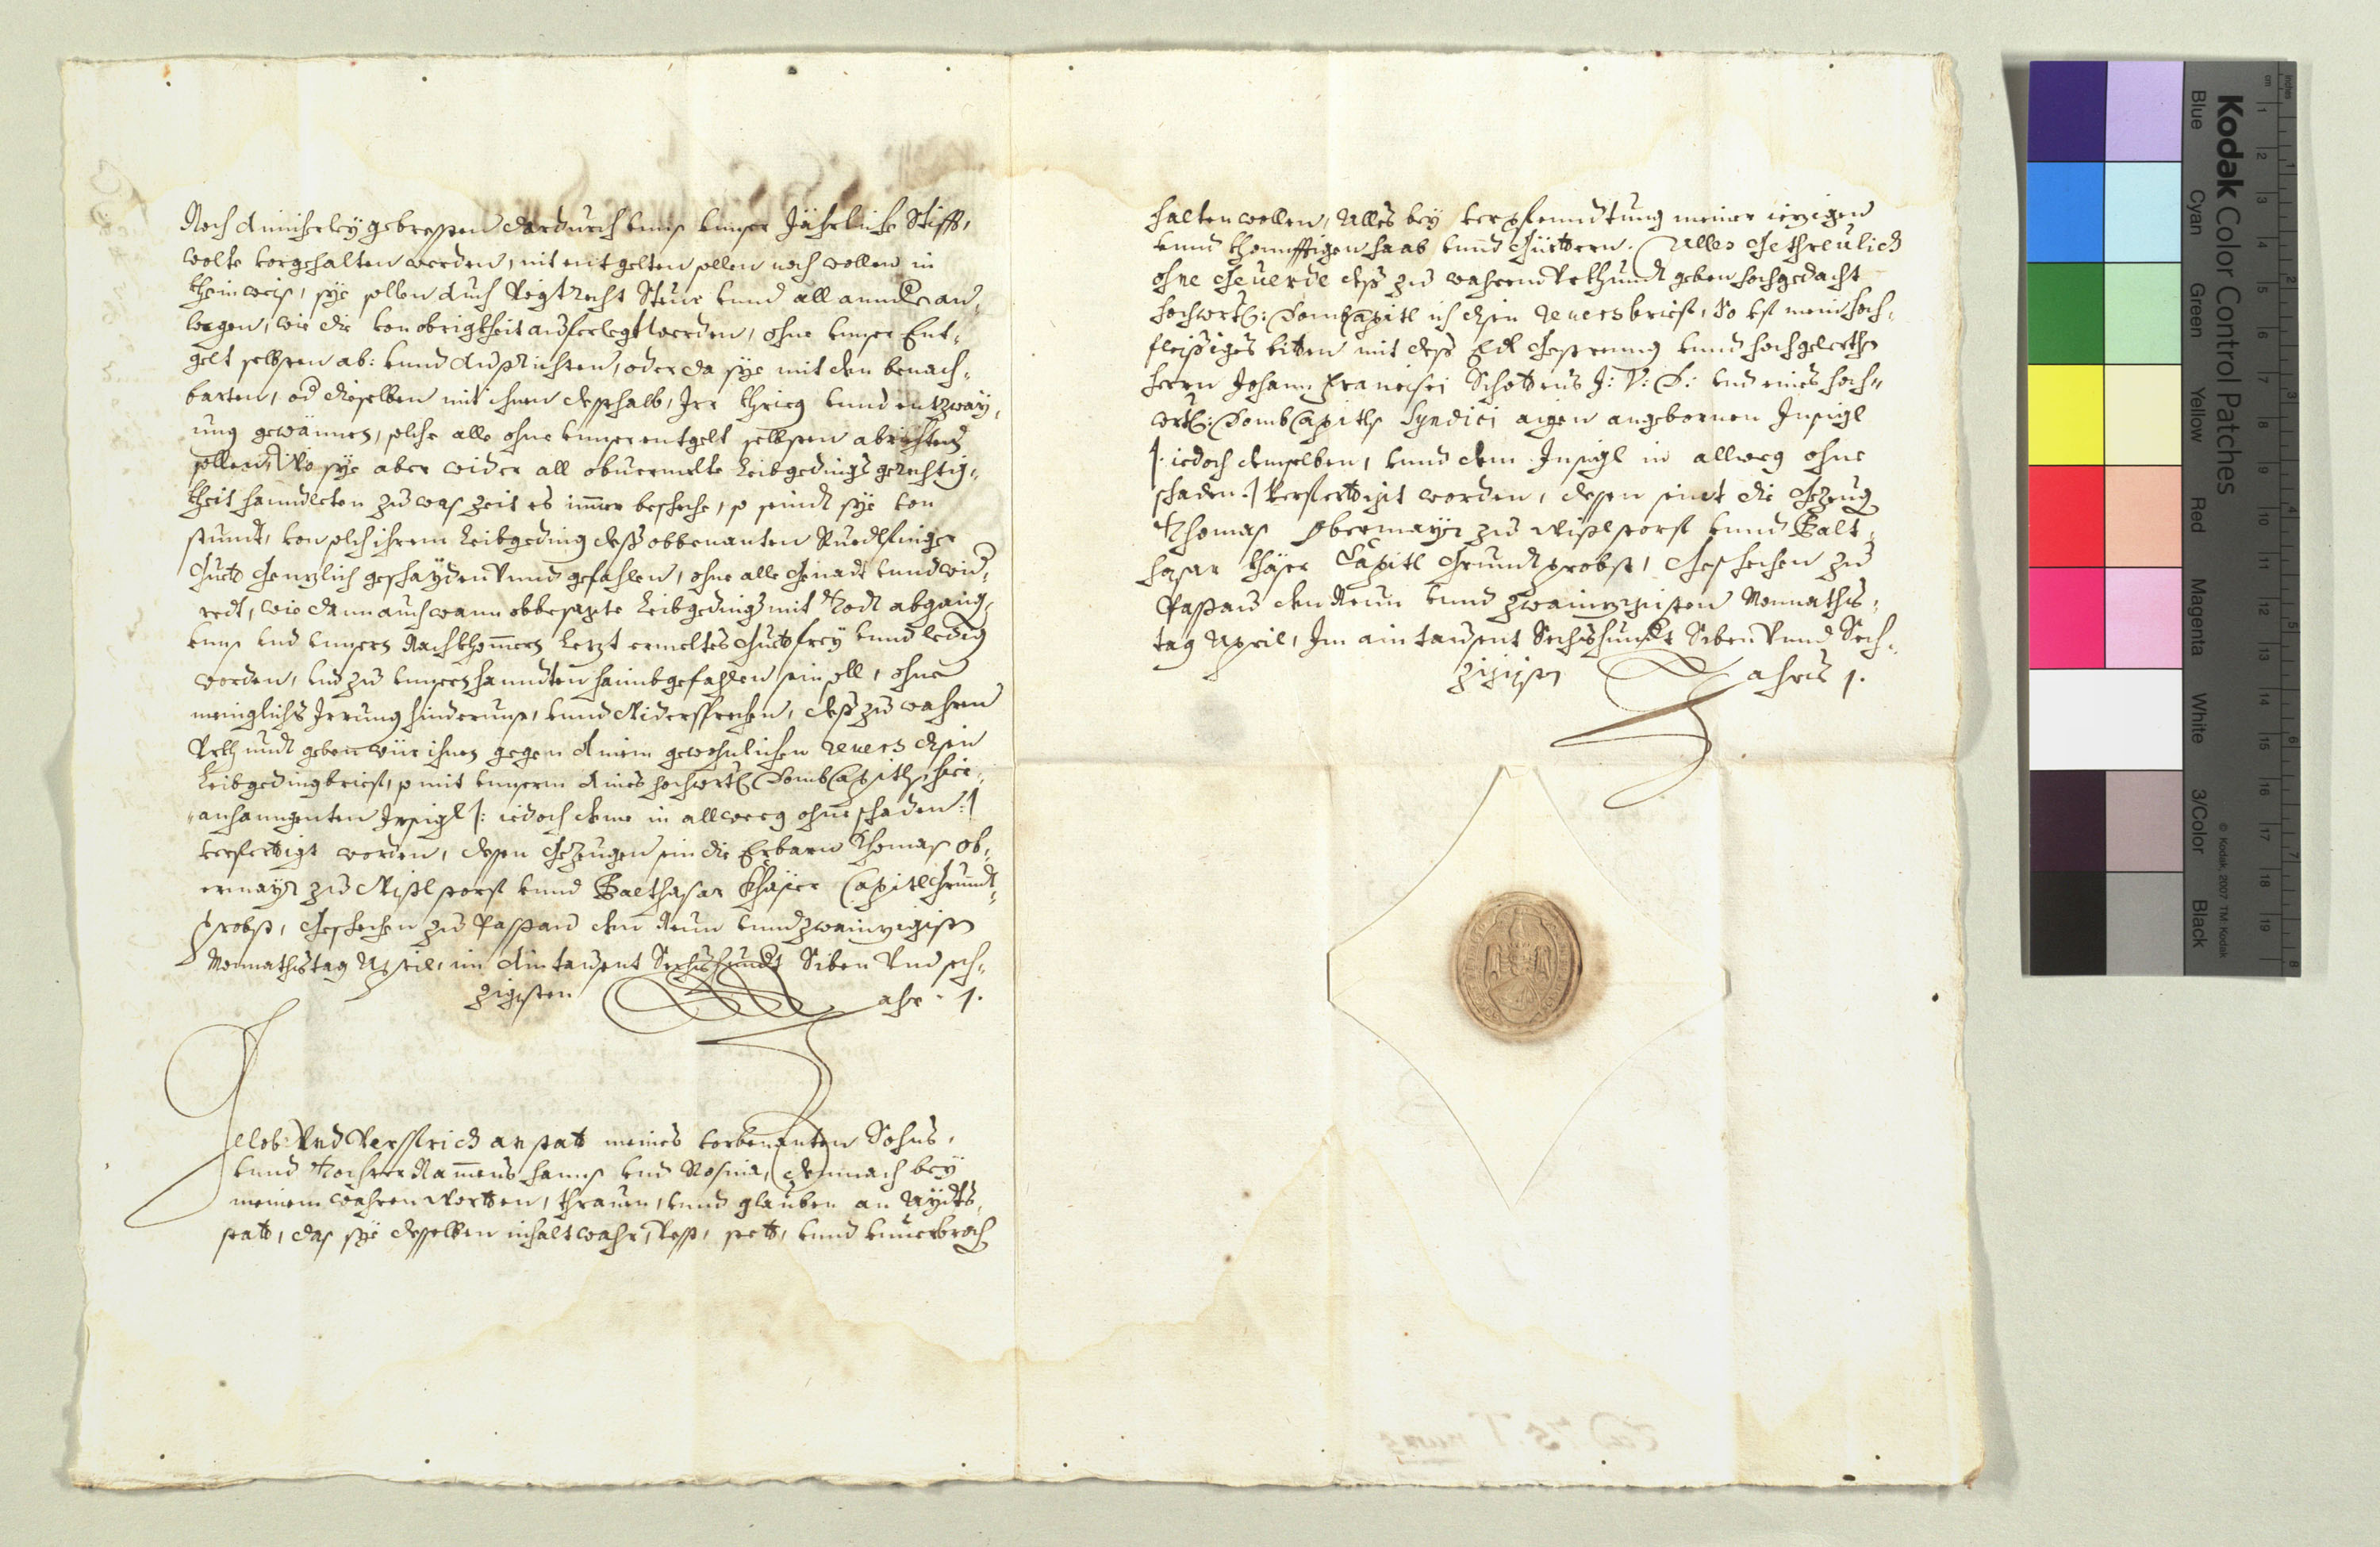 Noch ainicherley gebresten dardurch unns unnser Jährliche Stifft,
wolte vorgehalten werden, nit entgelten sollen noch wollen in
kheinweis, sÿe sollen auch Vogtrecht Steur unnd all annder an,,
lagen, wie die von obrigkheit auferlegt werden, ohne unnser Ent,,
gelt selbsten ab: unnd außrichten, oder da sÿe mit den benach,,
barten, od dieselben mit ihnen desshalb, Irr Khrieg unnd entzway,,
ung gewännen, solche alle ohne unnser entgelt selbsten abrichten
sollen, Wo sÿe aber wider all obuermelte Leibgedings gerechtig,,
kheit hanndleten zu was zeit es imer beschehe, so seindt sÿe von
stundt, von solch ihrem Leibgeding deß obbenanten Ruedlfinger
Guett Genzlich geschayden unnd gefahlen, ohne alle Genadt unnd wid,,
redt, wie dann auch wann obbesagte Leibgedings mit Todt abgang,,
unns und unnsern Nachkhomen letzt ermeltes Guett freÿ unnd ledig
worden, und zu unnsern hanndten haimbgefahlen sein soll, ohne
meniglichs Irrung hinderung, unnd Widersprechen, deß zu wahren
Urkhundt geben wür ihnen gegen ainem gewohnlichen reuers disen
Leibgedingbrieff, so mit unnserm aines hochwürd Dombcapitls hier,,
anhanngenten Insigl /: iedoch deme in allweeg ohne schaden :/
verfertigt worden, dessen Gezeugen sein die Erbarn Thomas Ob,,
ermayr zu Nißlstorff unnd Balthasar Khäser Capitl Grundt,,
probst, Geschehen zu Passau den Neun unnd zwainzigisten
Monnathstag April, im ain tausent Sechshundt Siben und sech,,
zigisten Jahr.
Gelob Und Versprich anstat meines vorbenanten Sohns,
unnd Tochter Namens hanns und Rosina, demnach beÿ
meinem wahren Wortten, thrauen, unnd glauben an Aydts
statt, das sÿe desselben inhalt wahr, Vesst, stett, unnd unuerbroch
halten wollen, Alles beÿ verpfenndtung meiner iezigen
unnd khonnfftigen haab unnd Güettern. Alles Gethreulich
ohne Geuerde deß zu wahrend Urkhundt geben hochgedacht
hochwürd: Dombcapitl ich disen reuersbrieff, So uf mein hoch,,
fleissiges bitten mit deß Edl Gestrenng unnd hochgelerthen
Herrn Johann Francisci Schottens J: V: D: und eines hoch,,
würd: Dombcapitls Syndici aigen angebornen Insigl
/: iedoch demselben, unnd dem Insigl in allweg ohne
schaden :/ Verfertigt worden, dessen seindt die Gezeug
Thomas Obermayr zu Nißlstorff unnd Balt,,
hasar Khäser Capitl Grundtprobst, Geschehen zu
Passau den Neun unnd zwainzigisten Monnaths,,
tag April, Im ain tausent Sechshundt Siben Unnd Sech,,
zigisten Jahrs.
Kodak Color Control Patches
Blue Cyan Green Yellow Red Magenta White 3/Color Black
© Kodak, 2007 TM Kodak
cm 1 2 3 4 5 6 7 8 9 10 11 12 13 14 15 16 17 18 19
inches 1 2 3 4 5 6 7 8